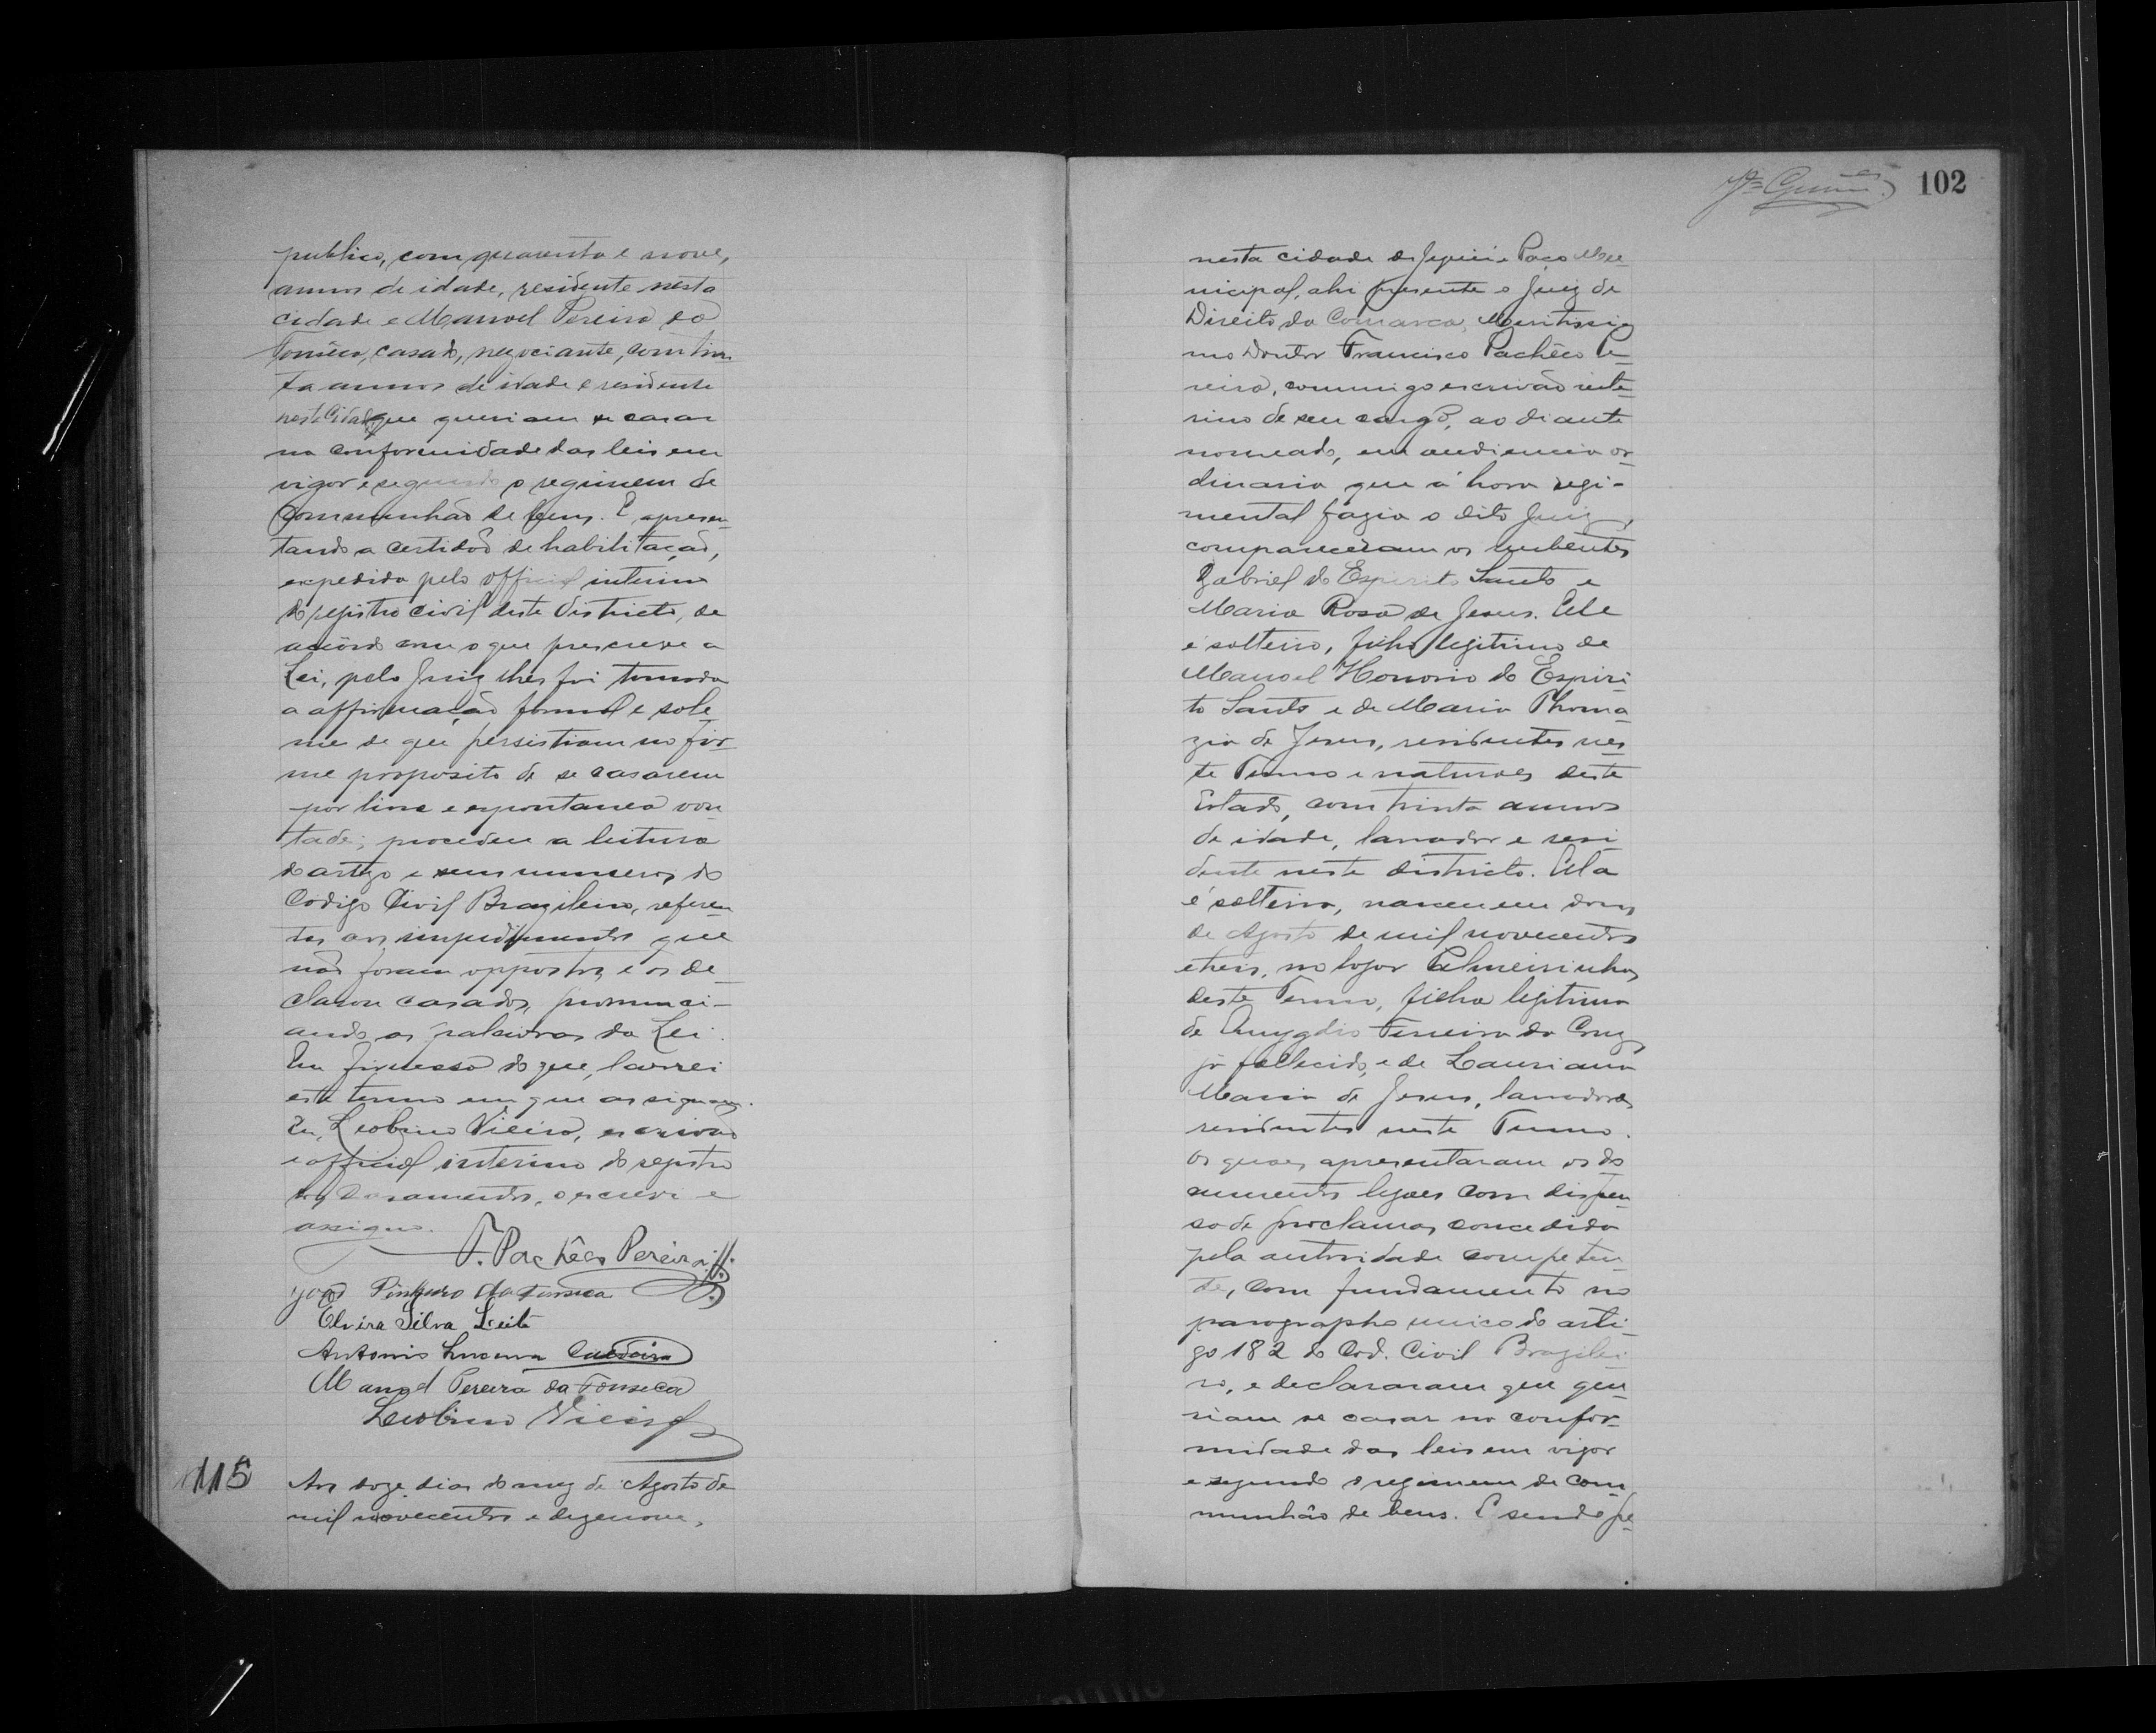 publico, com quarenta e nove,
annos de idade, residente nesta
cidade e Manoel Pereira da
Fonsêca, casado, negociante, com trin
ta annos de idade e residente
nesta Cidade que queriam se casar
na conformidade das leis em
vigor e segundo o regimem de
Communhão de bens. E, apresen-
tando a certidão de habilitação,
expedida pelo official interino
do registro civil deste districto, de
acôrdo com o que prescreve a
Lei, pelo Juiz lhes foi tomada
a affirmação formal e sole-
ne de que persistiam no fir-
me proposito de se casarem
por livre e espontanea von
tade; procedeu a leitura
do artigo e seus numeros do
Codigo Civil Brazileiro, referen
tes aos impedimentos que
não foram oppostos, e os de-
clarou casados, pronunci-
ando as palavras da Lei.
Em firmesa do que, lavrei
este termo em que assignam.
Eu, Leobino Vieira, escrivão
e official interino do registro
dos Casamentos, o escrevi e
assigno.
F. Pachêco Pereira
João Pinheiro da Fonseca
Elvira Silva Leite
Antonio
Manoel Pereira da Fonseca
Leobino Vieira
115
Aos doze dias do mez de Agosto de
mil novecentos e dezenove,
102
nesta cidade de Jequié e Paço Mu-
nicipal, ahi presente o Juiz de
Direito da Comarca, Meritissi-
mo Doutor Francisco Pachêco Pe-
reira, commigo escrivão inte-
rino de seu cargo, ao diante
nomeado, em audiencia or-
dinaria que á hora regi-
mental fazia o dito Juiz,
compareceram os nubentes
Gabriel do Espirito Santo e
Maria Rosa de Jesus. Elle
é solteiro, filho legitimo de
Manoel Honorio do Espiri-
to Santo e de Maria Thoma-
zia de Jesus, residentes nes-
te Termo e naturaes deste
Estado, com trinta annos
de idade, lavrador e resi
dente neste districto. Ella
é solteira, nasceu em dous
de Agosto de mil novecentos
e treis, no logar Palmeirinha,
deste Termo, filha legitima
de Amygdio Ferreira da Cruz,
já fallecido, e de Lauriana
Maria de Jesus, lavradores
residentes neste Termo.
Os quaes apresentaram os do-
cumentos legaes com dispen-
sa de proclamas, concedida
pela autoridade competen-
te, com fundamento no
paragrapho unico do arti-
go 182 do Cod. Civil Brazilei-
ro, e declararam que que-
riam se casar na confor-
midade das leis em vigor
e segundo o regimem de com-
munhão de bens. E sendo pe-